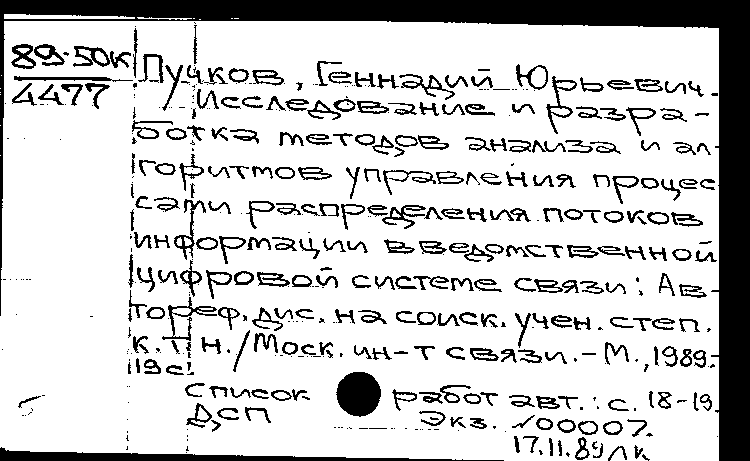 89-50к
4477
Пучков, Геннадий Юрьевич.
Исследование и разра-
ботка методов анализа и ал-
горитмов управления процес
сами распределения потоков
информации в ведомственной
цифровой системе связи: Ав-
тореф. дис. на соиск. учен. степ.
к.т.н. / Моск. ин-т связи. - М., 1989.-
19 с.
Список работ авт.: с. 18-19.
ДСП Экз. №00007.
17.11.89